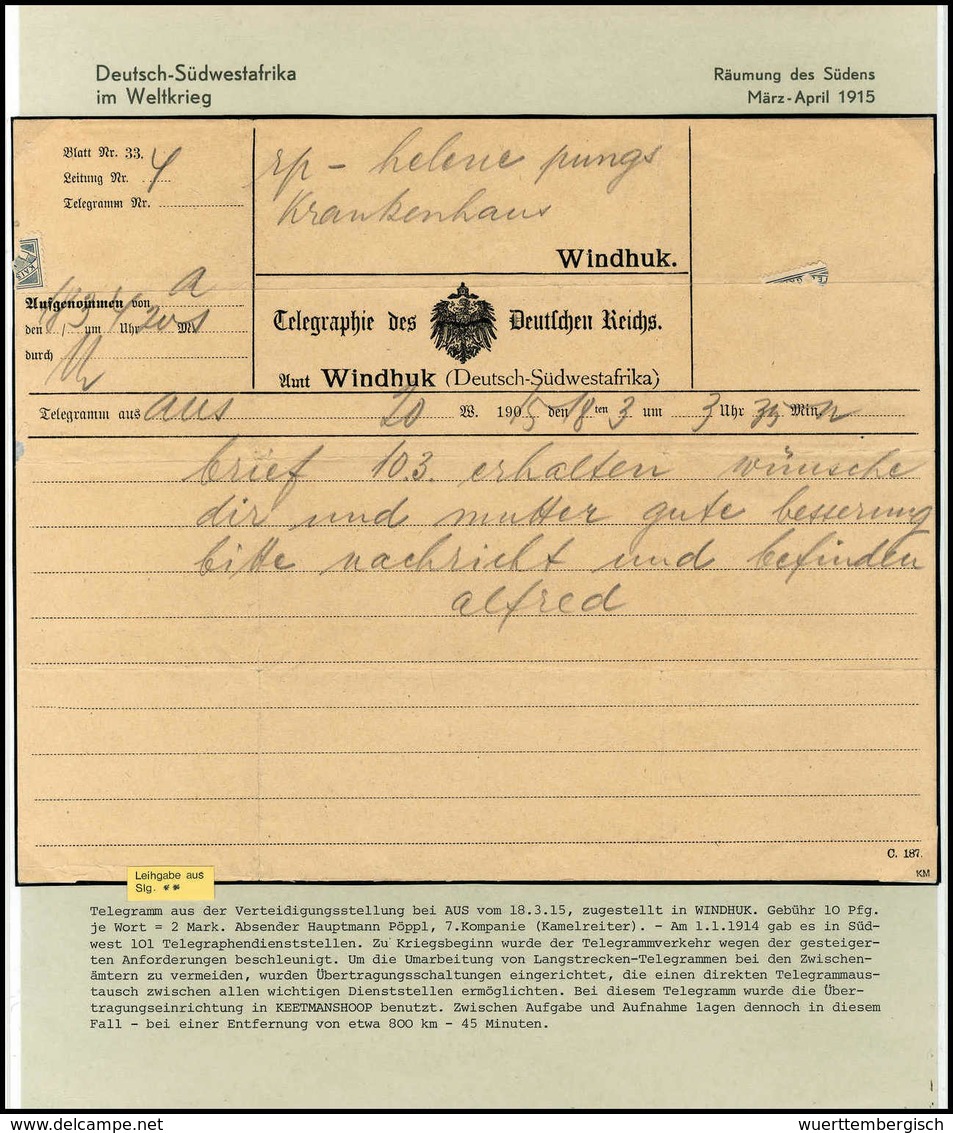 Deutsch-Südwestafrika
im Weltkrieg
Räumung des Südens
März-April 1915
Blatt Nr. 33.
Leitung Nr. 4
Telegramm Nr.
rp - helene pungs
Krankenhaus
Windhuk.
Aufgenommen von a
den 18/3 um 4 Uhr 20 M s
durch
Telegraphie des Deutschen Reichs.
Amt Windhuk (Deutsch-Südwestafrika)
Telegramm aus aus 20 W. 1905 den 18 ten 3 um 3 Uhr 35 Min n
brief 10.3. erhalten wünsche
dir und mutter gute besserung
bitte nachricht und befinden
alfred
C. 187.
KM
Leihgabe aus
Slg. **
Telegramm aus der Verteidigungsstellung bei AUS vom 18.3.15, zugestellt in WINDHUK. Gebühr 10 Pfg.
je Wort = 2 Mark. Absender Hauptmann Pöppl, 7.Kompanie (Kamelreiter). - Am 1.1.1914 gab es in Süd-
west 101 Telegraphendienststellen. Zu Kriegsbeginn wurde der Telegrammverkehr wegen der gesteiger-
ten Anforderungen beschleunigt. Um die Umarbeitung von Langstrecken-Telegrammen bei den Zwischen-
ämtern zu vermeiden, wurden Übertragungsschaltungen eingerichtet, die einen direkten Telegrammaus-
tausch zwischen allen wichtigen Dienststellen ermöglichten. Bei diesem Telegramm wurde die Über-
tragungseinrichtung in KEETMANSHOOP benutzt. Zwischen Aufgabe und Aufnahme lagen dennoch in diesem
Fall - bei einer Entfernung von etwa 800 km - 45 Minuten.
www.delcampe.net
wuerttembergisch